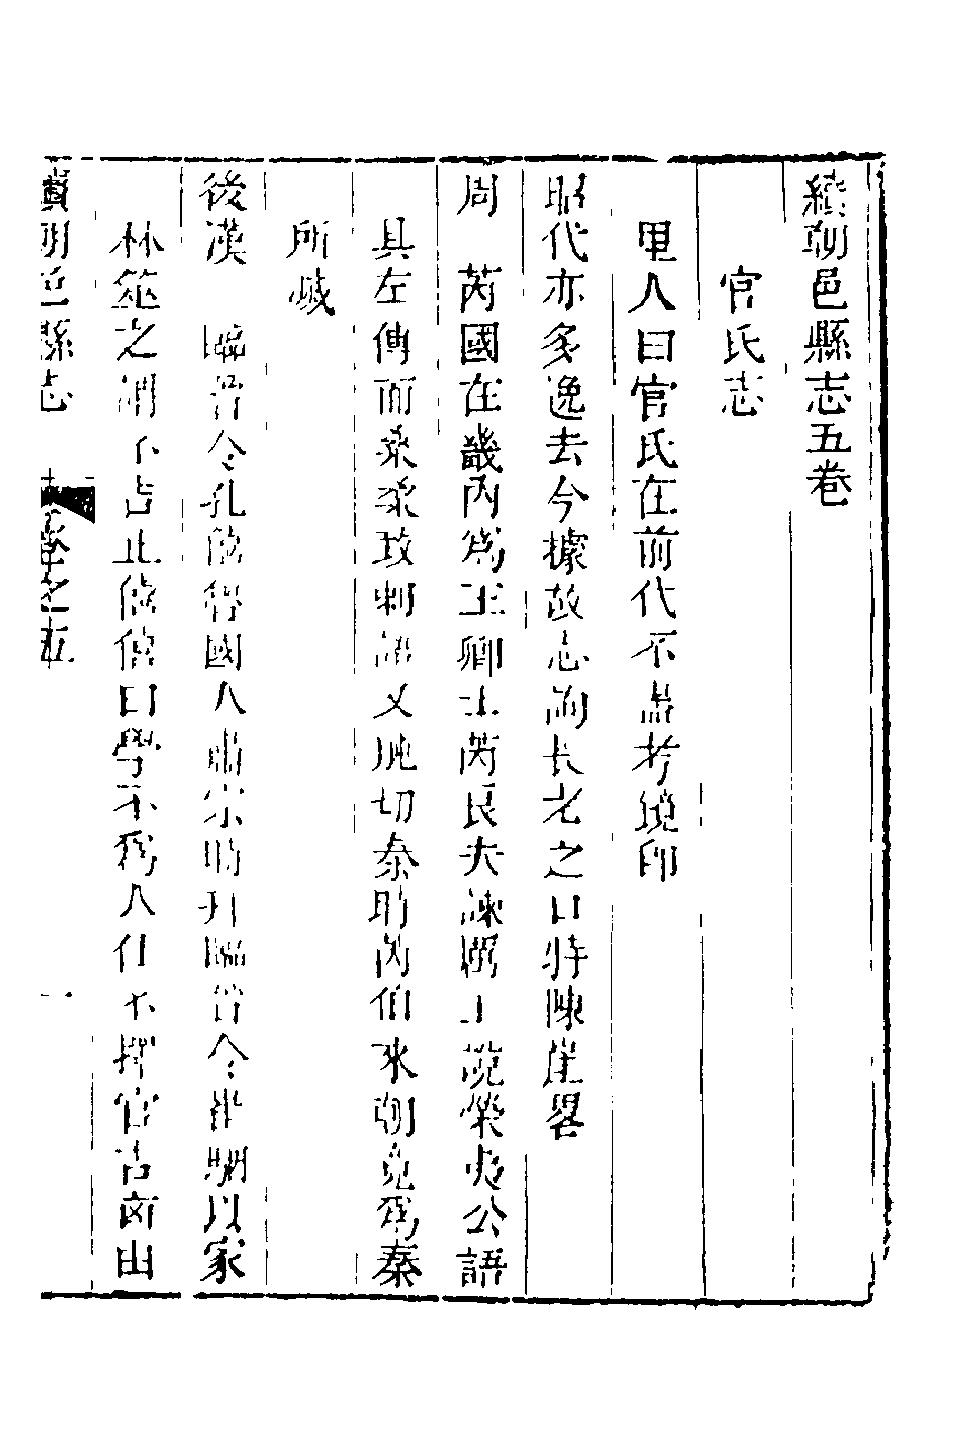 續朝邑縣志五卷
官氏志
里人曰官氏在前代不盡考鏡卽
昭代亦多逸去今據故志詢長老之口特陳崖畧
周 芮國在畿內爲王卿士芮良夫諫厲王說榮夷公語
具左傳而桑柔攻刺語又剴切秦時芮伯來朝竟爲秦
所滅
後漢 臨晉令孔僖魯國人肅宗時拜臨晉令崔駰以家
林筮之謂不吉止僖僖曰學不爲人仕不擇官吉凶由
續朝邑縣志 卷之五 一